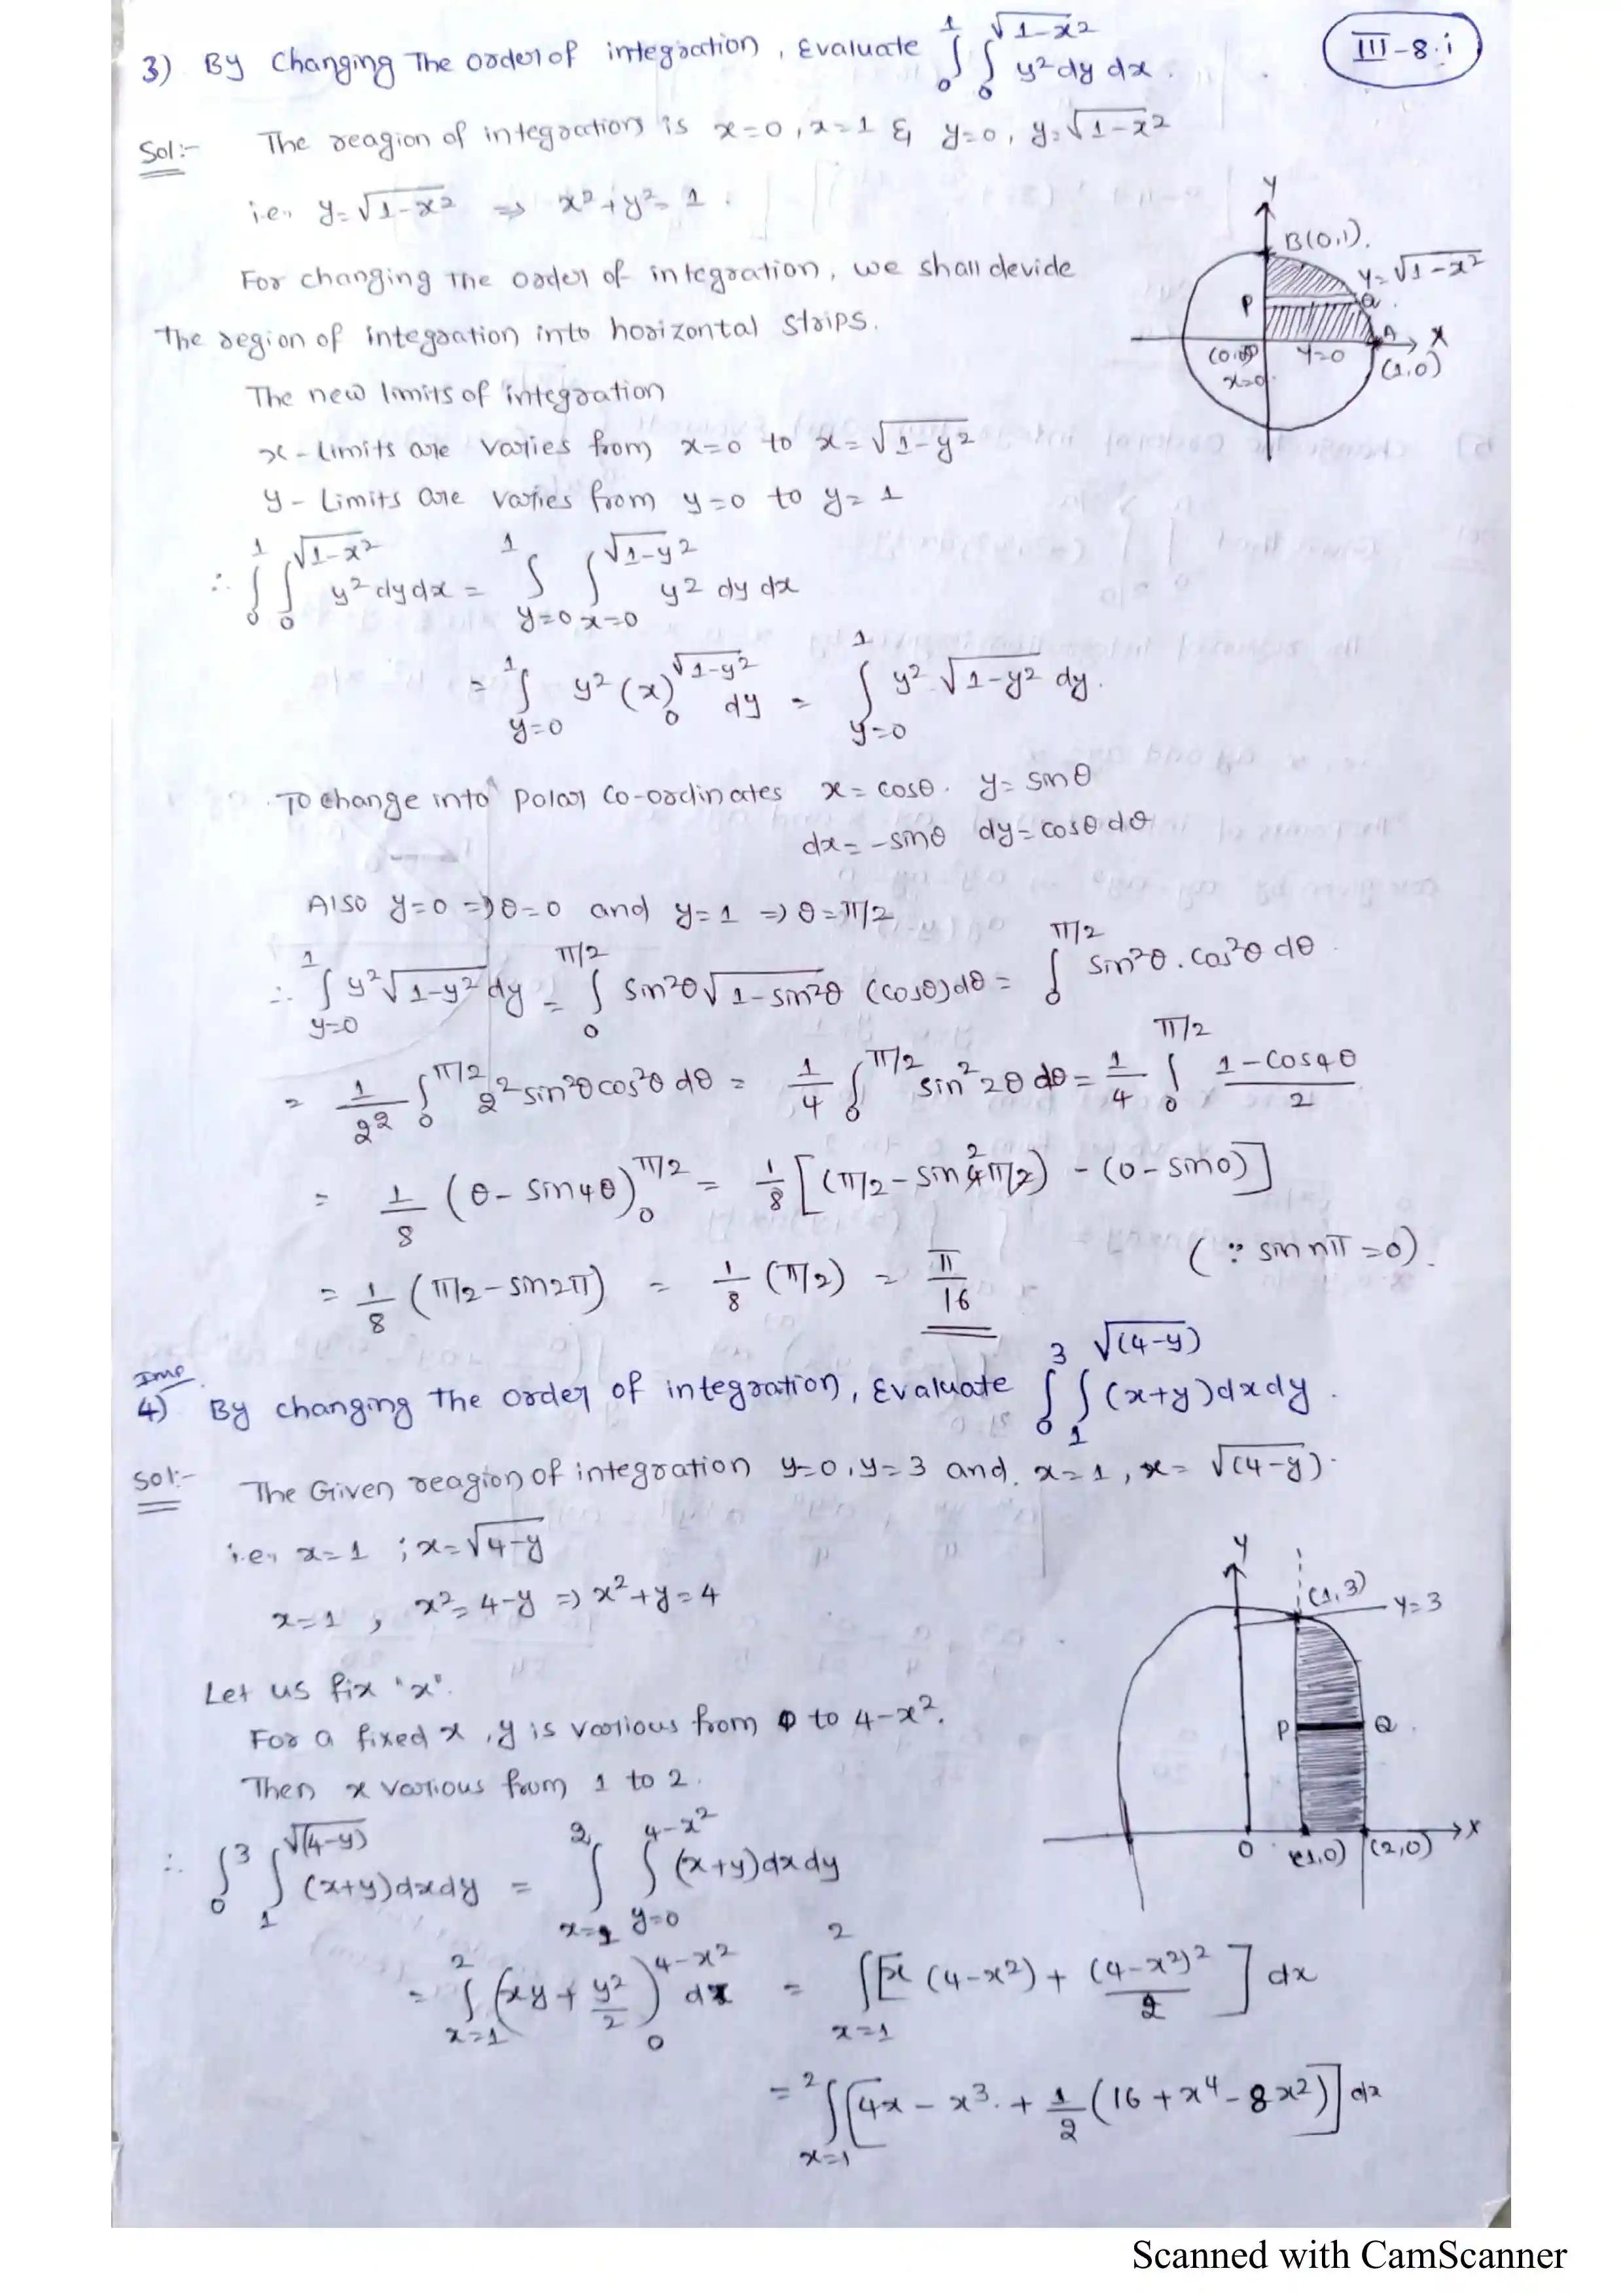 3) By Changing The order of integration, Evaluate ∫₀¹ ∫₀^√(1-x²) y² dy dx. III-8.i
Sol:- The reagion of integration is x=0, x=1 & y=0, y=√(1-x²)
i.e., y=√(1-x²) ⇒ x²+y²=1.
For changing The order of integration, we shall devide
The region of integration into horizontal strips.
Y
B(0,1).
y=√(1-x²)
P Q
A X
y=0
x=0 (1,0)
The new limits of integration
x - limits are varies from x=0 to x=√(1-y²)
y - Limits are varies from y=0 to y=1
∴ ∫₀¹ ∫₀^√(1-x²) y² dy dx = ∫_{y=0}^1 ∫_{x=0}^√(1-y²) y² dy dx
= ∫_{y=0}^1 y² (x)₀^√(1-y²) dy = ∫_{y=0}^1 y² √(1-y²) dy.
To change into Polar Co-ordinates x=cosθ. y=sinθ
dx=-sinθ dy=cosθ dθ
Also y=0 ⇒ θ=0 and y=1 ⇒ θ=π/2
∴ ∫_{y=0}^1 y²√(1-y²) dy = ∫₀^{π/2} sin²θ √(1-sin²θ) (cosθ)dθ = ∫₀^{π/2} sin²θ.cos²θ dθ
= 1/2² ∫₀^{π/2} 2² sin²θ cos²θ dθ = 1/4 ∫₀^{π/2} sin² 2θ dθ = 1/4 ∫₀^{π/2} (1-cos4θ)/2
= 1/8 (θ-sin4θ)₀^{π/2} = 1/8 [(π/2-sin 4π/2) - (0-sin0)]
= 1/8 (π/2-sin2π) = 1/8 (π/2) = π/16 (∵ sin nπ=0).
Imp
4) By changing The order of integration, Evaluate ∫₀³ ∫₁^√(4-y) (x+y)dxdy.
Sol:- The Given reagion of integration y=0, y=3 and x=1, x=√(4-y).
i.e., x=1 ; x=√(4-y)
x=1 , x²=4-y ⇒ x²+y=4
Y
(1,3)
y=3
P Q
O (1,0) (2,0) X
Let us fix "x".
For a fixed x, y is various from 0 to 4-x².
Then x various from 1 to 2.
∴ ∫₀³ ∫₁^√(4-y) (x+y)dxdy = ∫_{x=1}^2 ∫_{y=0}^{4-x²} (x+y)dxdy
= ∫_{x=1}^2 (xy + y²/2)₀^{4-x²} dx = ∫_{x=1}^2 [x(4-x²) + (4-x²)²/2] dx
= ∫_{x=1}^2 [4x - x³ + 1/2 (16+x⁴-8x²)] dx
Scanned with CamScanner